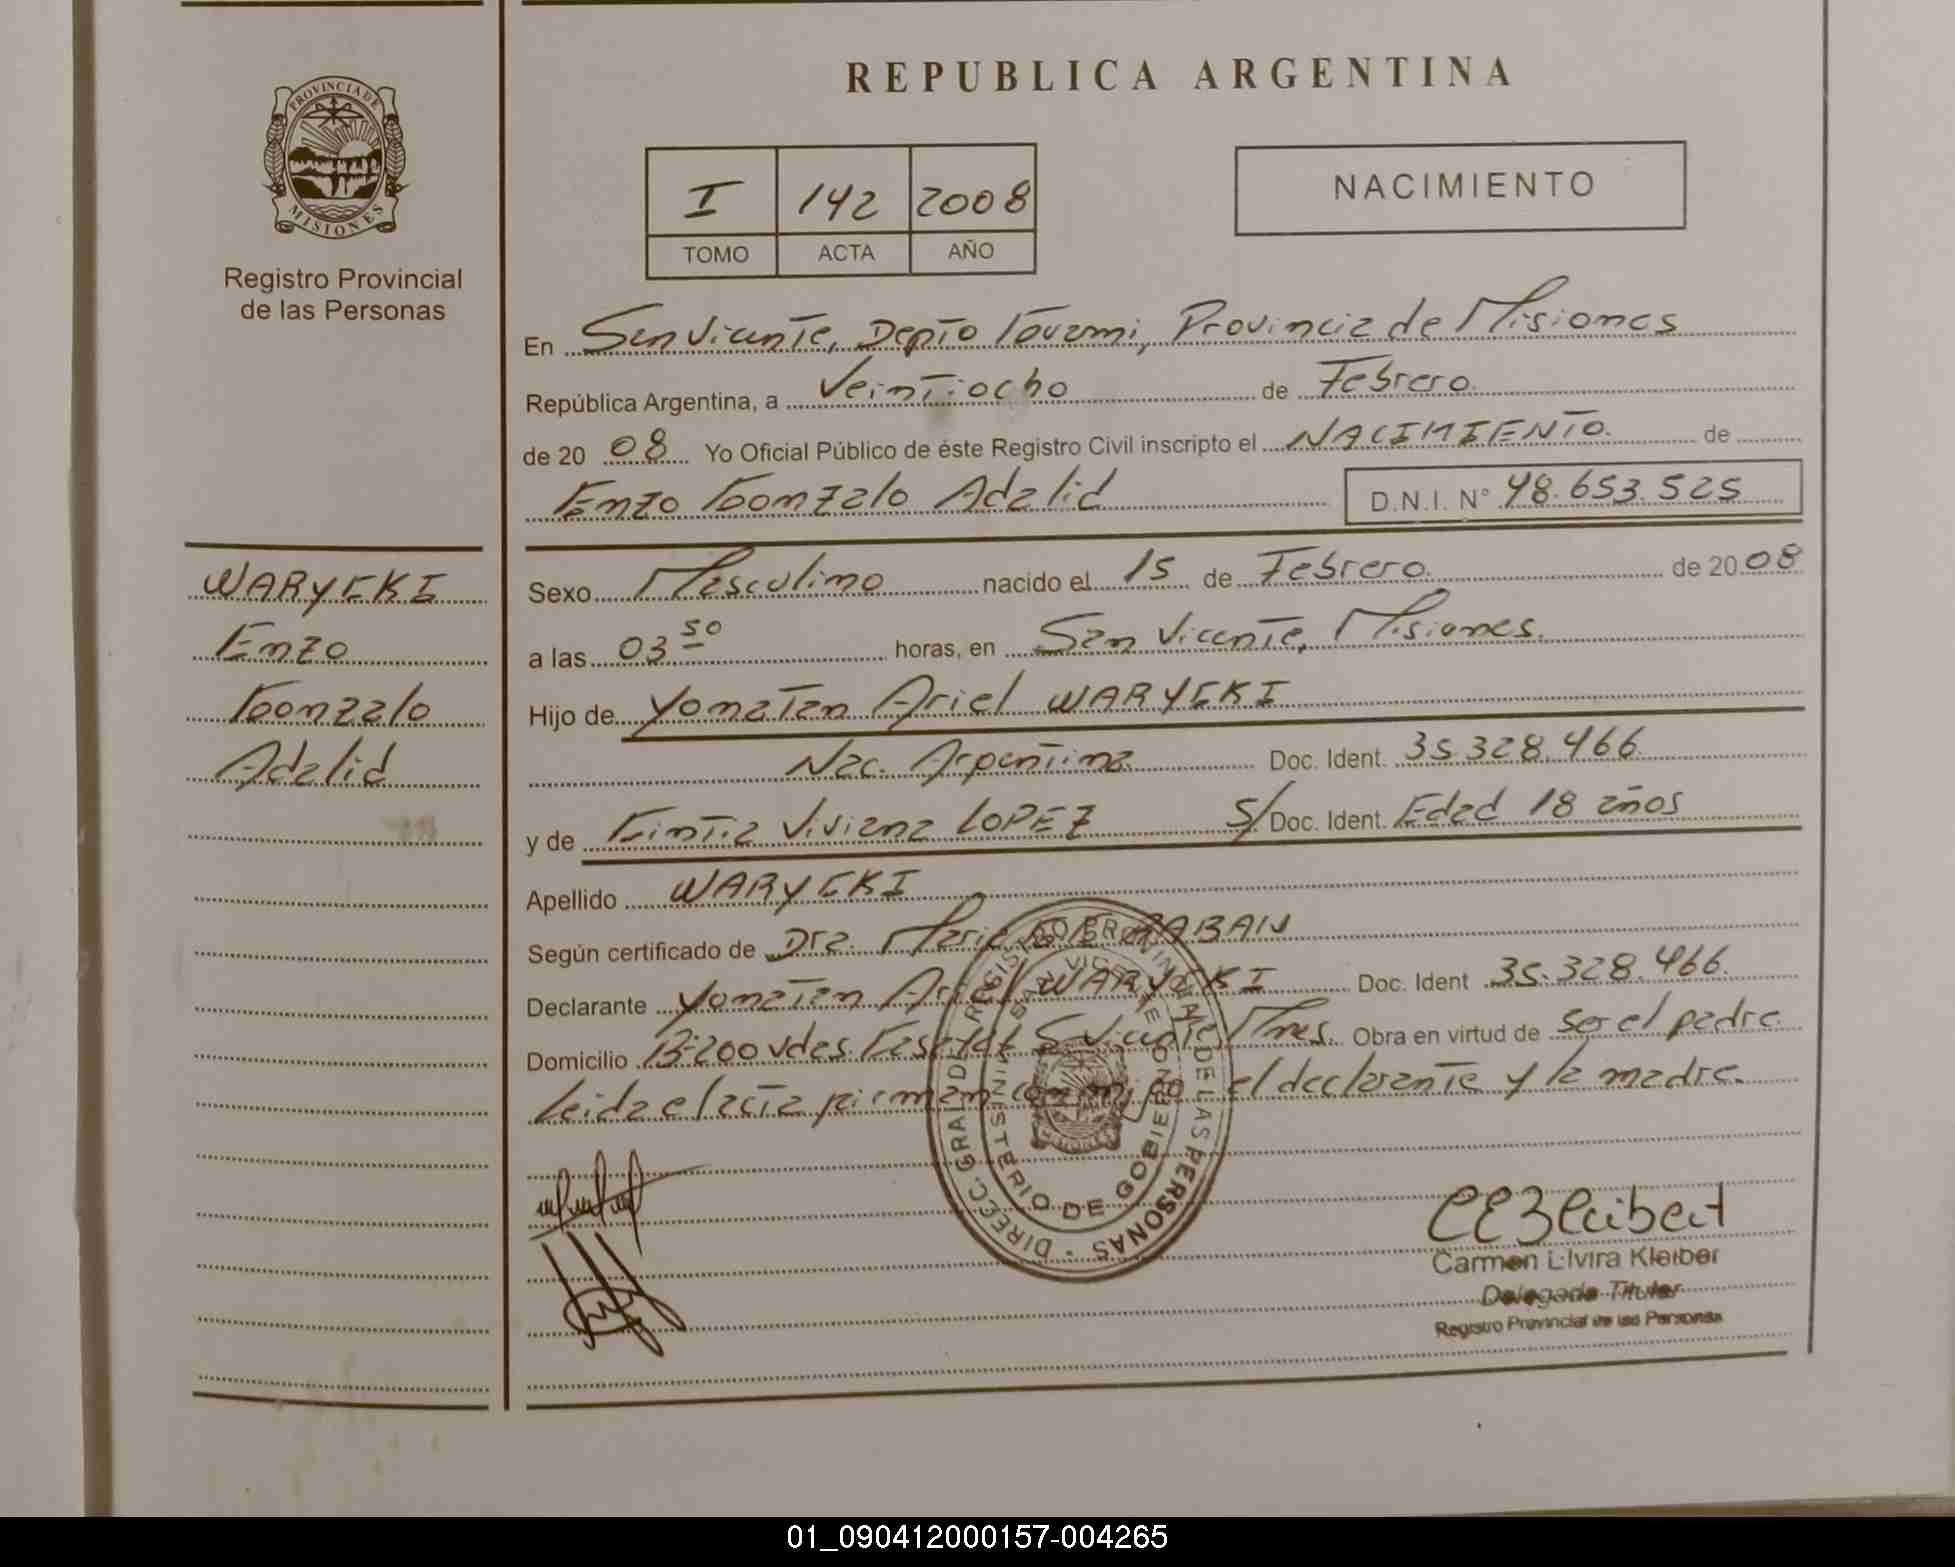 REPUBLICA ARGENTINA
PROVINCIA DE MISIONES
Registro Provincial
de las Personas
I 142 2008
TOMO ACTA AÑO
NACIMIENTO
En San Vicente, Depto Guarani, Provincia de Misiones
República Argentina, a Veintiocho de Febrero
de 20 08 Yo Oficial Público de éste Registro Civil inscripto el NACIMIENTO de
Enzo Gonzalo Adalid D.N.I. N° 48.653.525
WARYCKI
Enzo
Gonzalo
Adalid
Sexo Masculino nacido el 15 de Febrero de 20 08
a las 03 50 horas, en San Vicente, Misiones.
Hijo de Yonatan Ariel WARYCKI
Nac. Argentina Doc. Ident. 35.328.466
y de Cintia Viviana LOPEZ S/ Doc. Ident. Edad 18 años
Apellido WARYCKI
Según certificado de Dra.
Declarante Yonatan Ariel WARYCKI Doc. Ident 35.328.466
Domicilio B-200 vdas. S. Vicente Mnes. Obra en virtud de ser el padre
Leida el acta firman conmigo el declarante y la madre.
DIRECC. GRAL DE REGISTRO PROVINCIAL DE LAS PERSONAS
MINISTERIO DE GOBIERNO
SAN VICENTE
Carmen Elvira Kleiber
Delegada Titular
Registro Provincial de las Personas
01_090412000157-004265